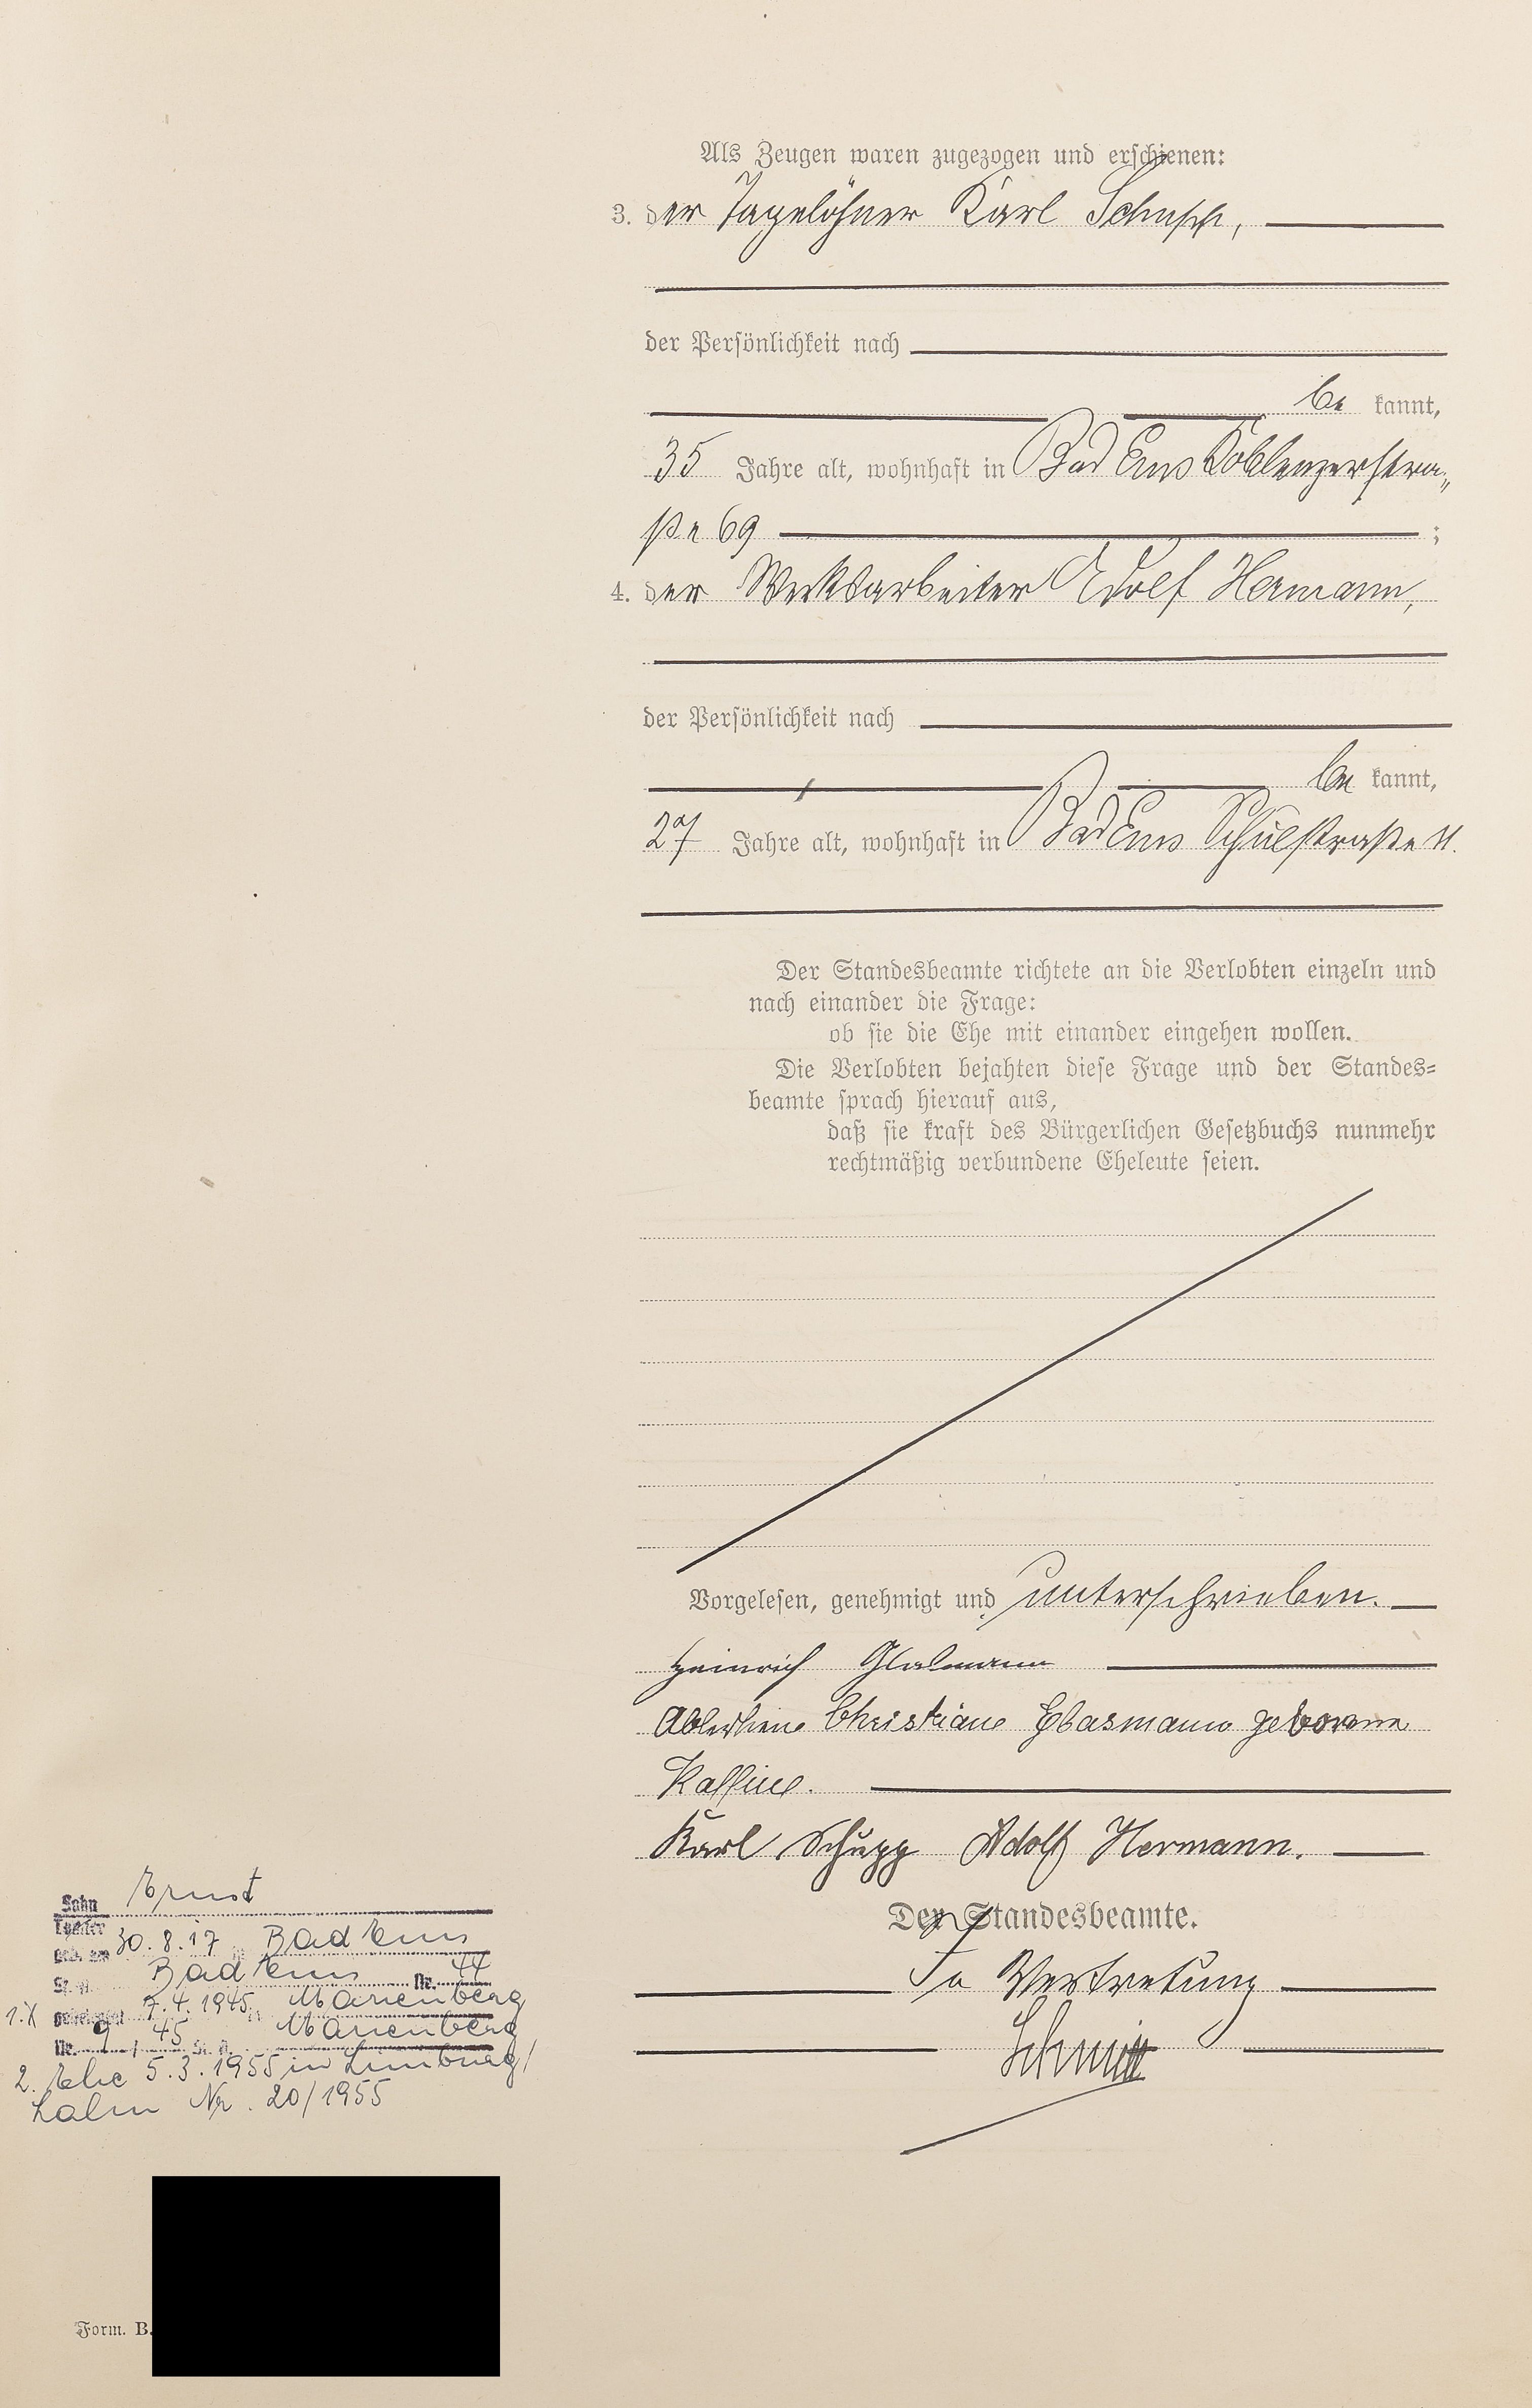 Als Zeugen waren zugezogen und erschienen:
3. der Tagelöhner Karl Schupp,
der Persönlichkeit nach
be kannt,
35 Jahre alt, wohnhaft in Bad Ems Koblenzerstra„
ße 69 ;
4. der Werksarbeiter Adolf Hermann,
der Persönlichkeit nach
be kannt,
27 Jahre alt, wohnhaft in Bad Ems Schulstraße 11.
Der Standesbeamte richtete an die Verlobten einzeln und
nach einander die Frage:
ob sie die Ehe mit einander eingehen wollen.
Die Verlobten bejahten diese Frage und der Standes=
beamte sprach hierauf aus,
daß sie kraft des Bürgerlichen Gesetzbuchs nunmehr
rechtmäßig verbundene Eheleute seien.
Vorgelesen, genehmigt und unterschrieben.
Heinrich Glasmann
Christiane Glasmann geborene
Karl Schupp Adolf Hermann.
Der Standesbeamte.
In Vertretung
Schmitt
Sohn Ernst
Tochter
geb. am 30.8.17 Bad Ems
St. A. Bad Ems Nr. 44
1.X geheiratet 7.4.1945 Marienberg
Nr. 9 / 45 St. A. Marienberg
2. Ehe 5.3.1955 in Limburg/
Lahn Nr. 20/1955
Form. B.